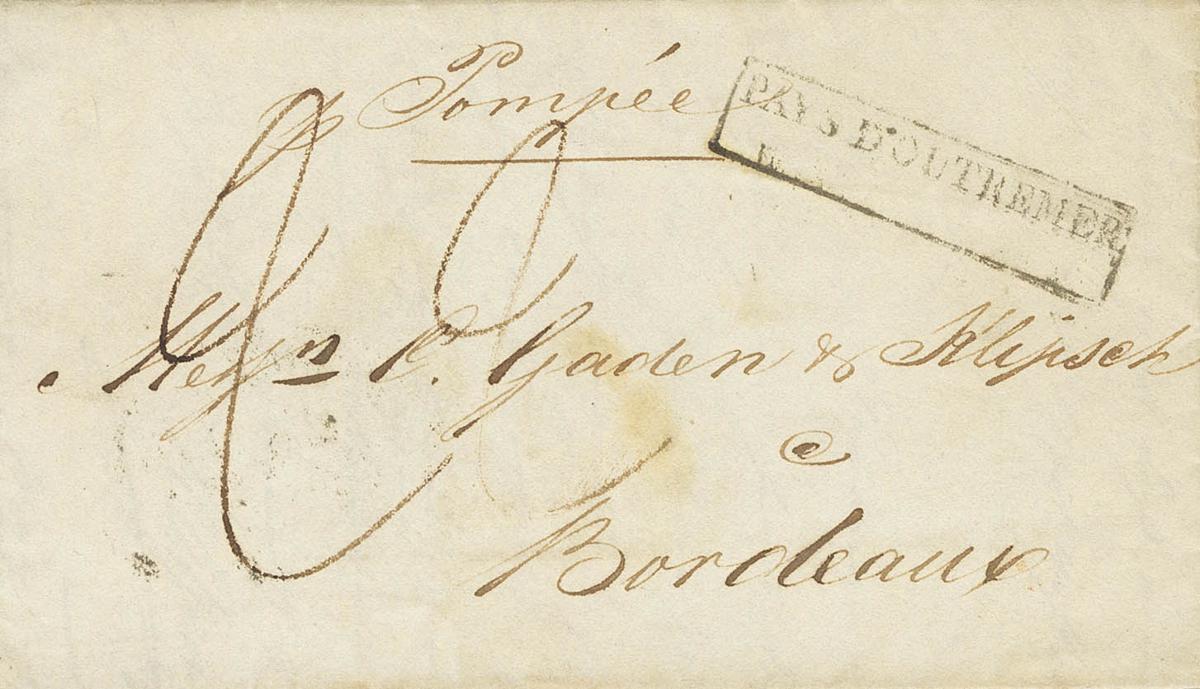 p Pompée
PAYS D'OUTREMER
Messrs C. Gaden & Klipsch
a
Bordeaux